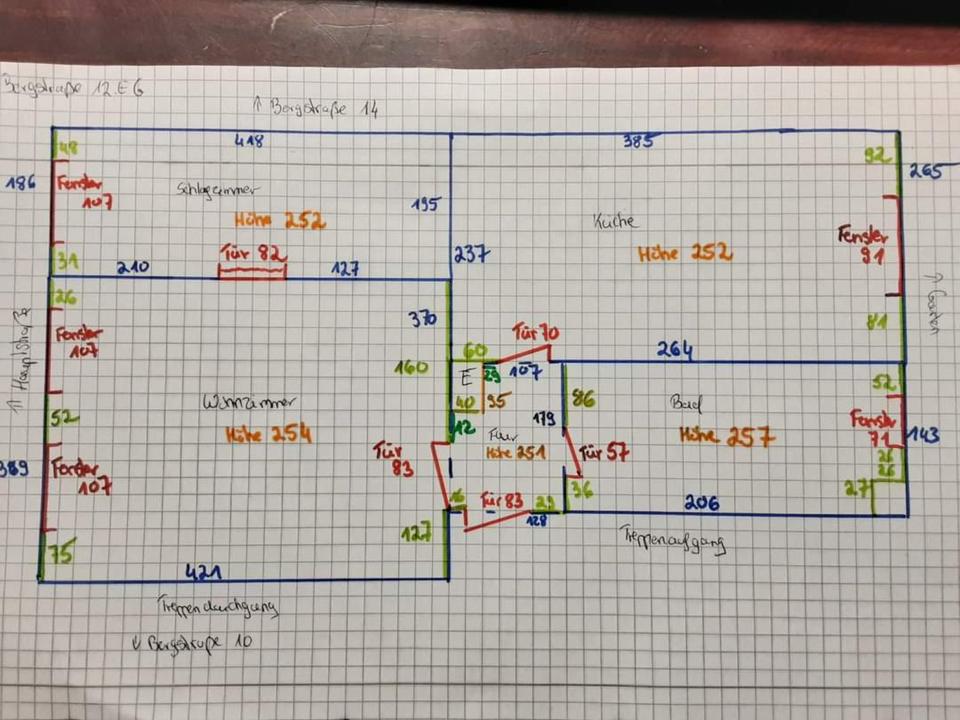 Bergstraße 12.EG
↑ Bergstraße 14
418
385
48
92
186
Fenster
107
Schlafzimmer
195
265
Küche
Höhe 252
Höhe 252
Fenster
91
31
Tür 82
237
210
127
26
↑ Garten
370
81
Fenster
107
Tür 70
60
264
↑ Hauptstraße
160
E
29
107
52
40
95
86
Bad
Wohnzimmer
52
12
179
Fenster
71
143
Höhe 254
Flur
Höhe 251
Höhe 257
Tür
83
Tür 57
26
26
389
Fenster
107
16
Tür 83
29
36
27
128
206
127
75
Treppenaufgang
421
Treppendurchgang
↓ Bergstraße 10